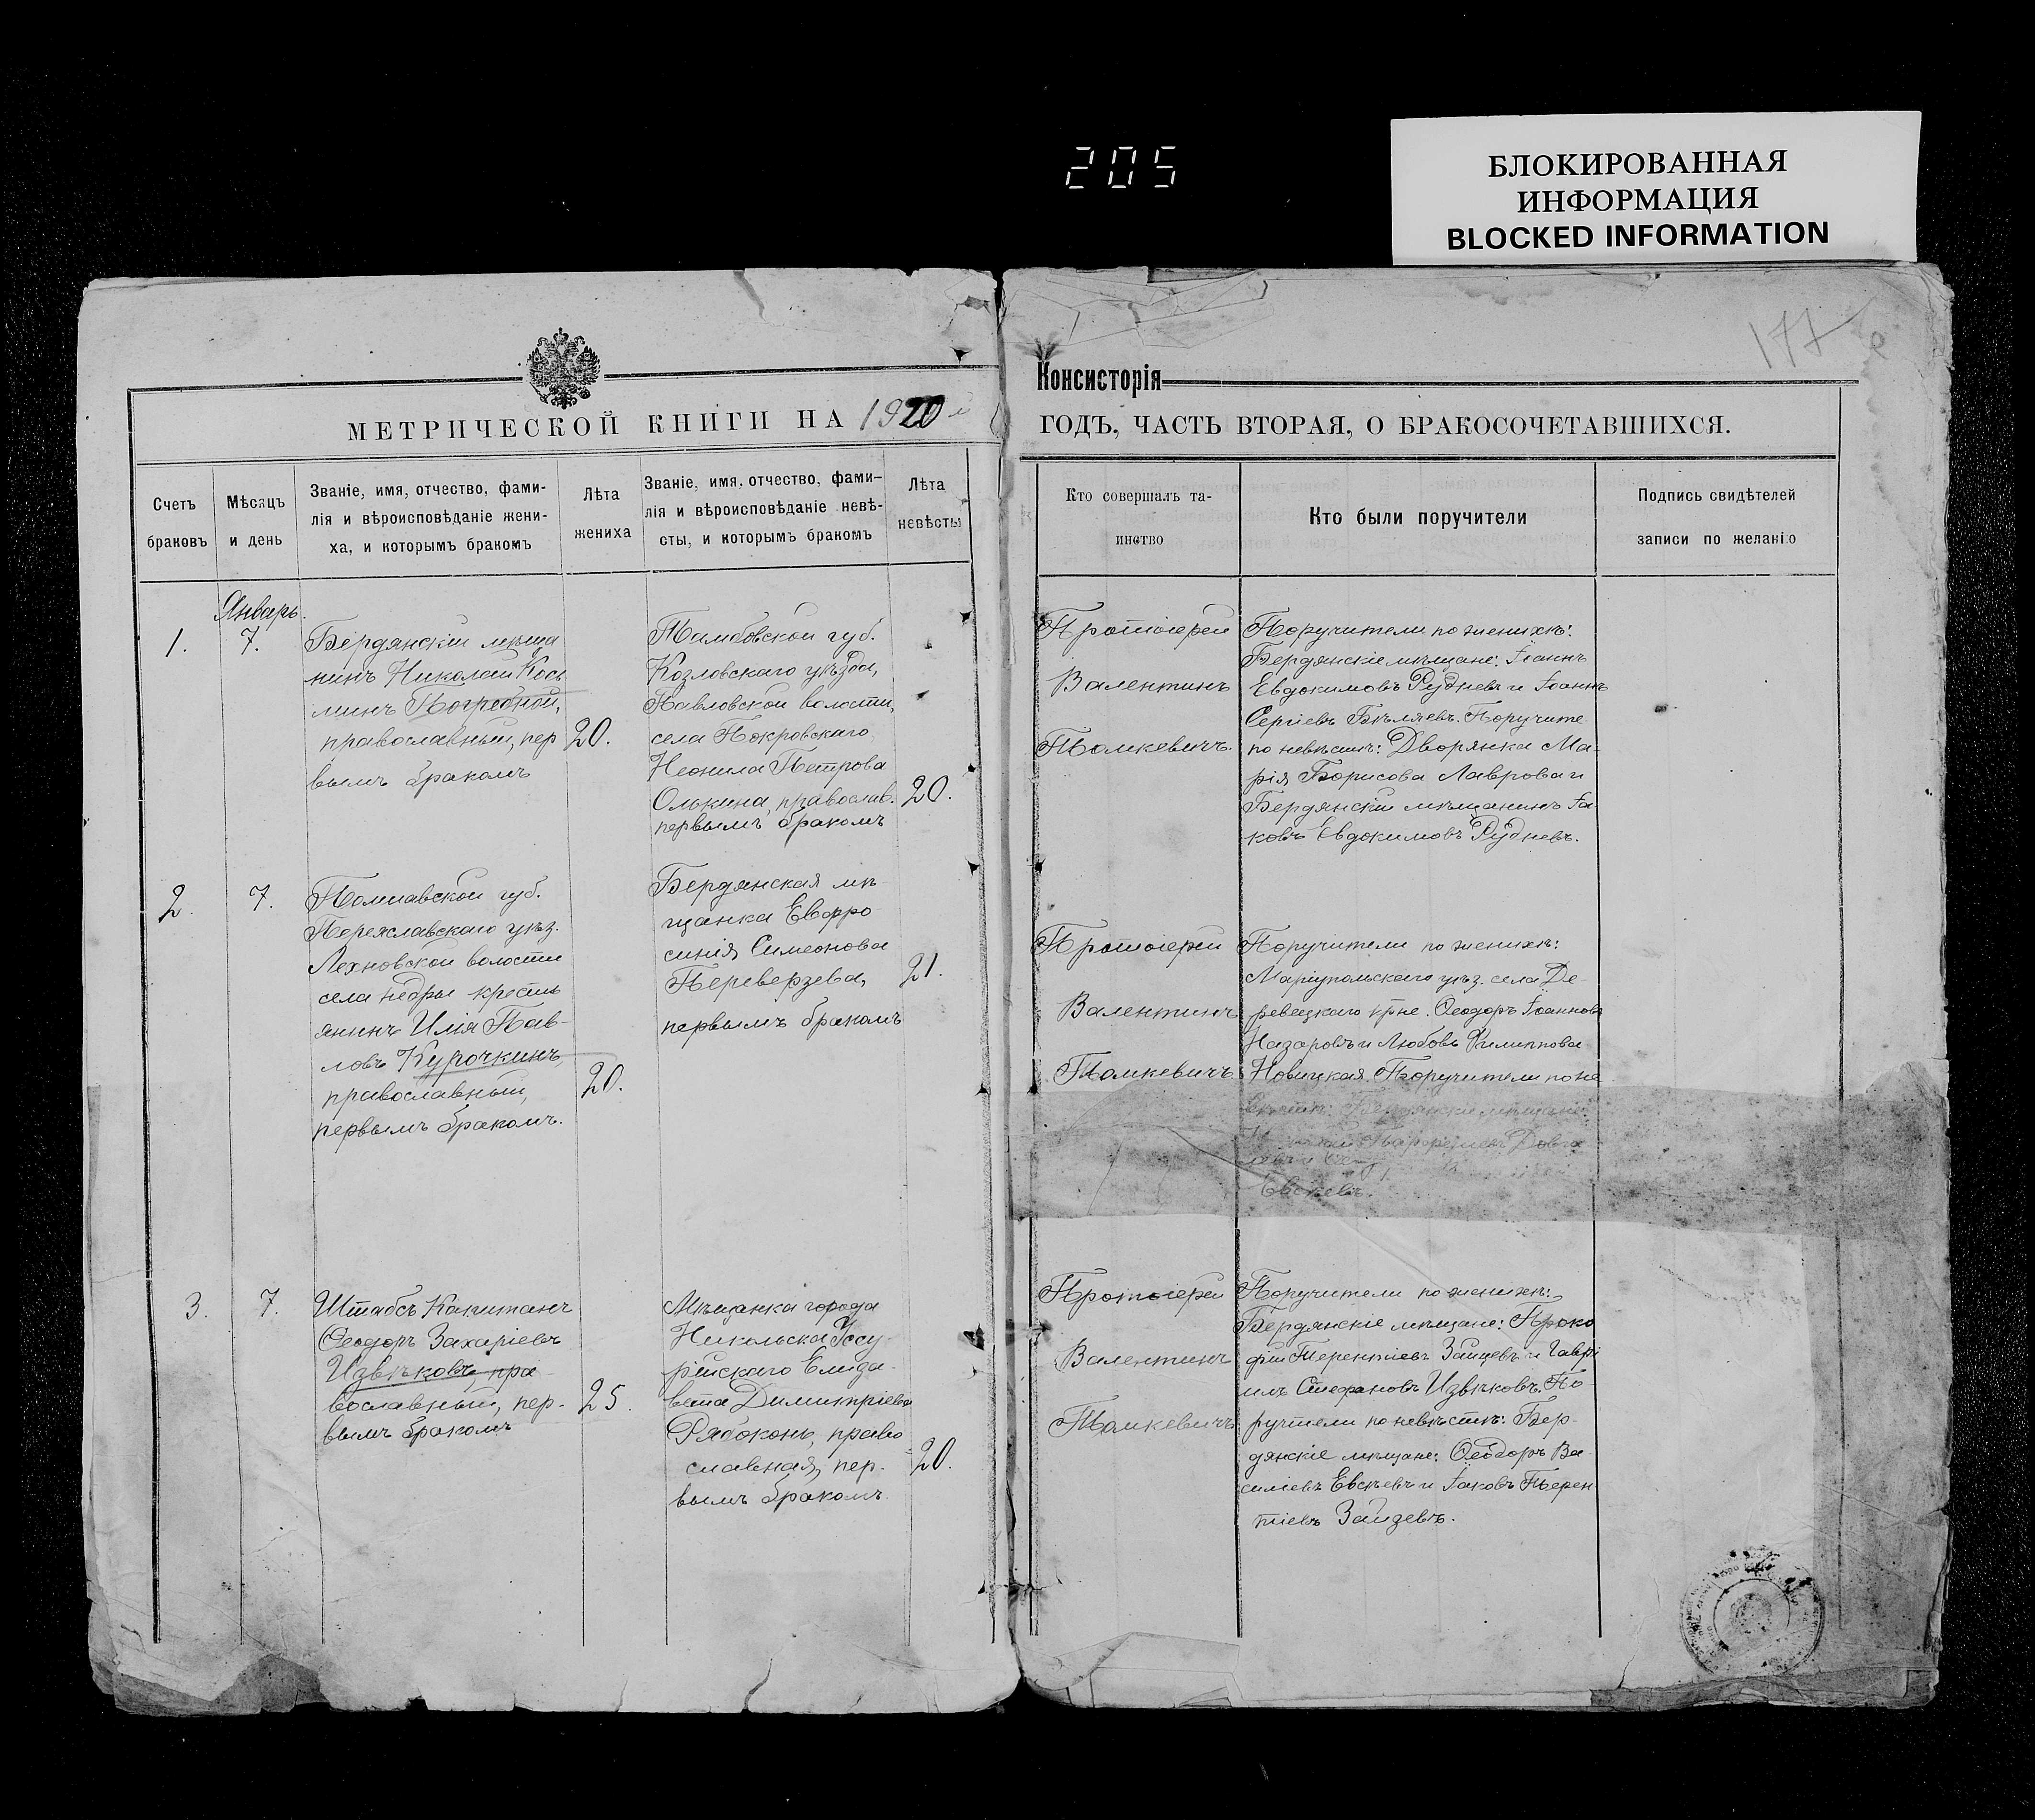 205
БЛОКИРОВАННАЯ
ИНФОРМАЦИЯ
BLOCKED INFORMATION
177
Консисторія
МЕТРИЧЕСКОЙ КНИГИ НА 1920 й
ГОДЪ, ЧАСТЬ ВТОРАЯ, О БРАКОСОЧЕТАВШИХСЯ.
Счетъ
браковъ
Мѣсяцъ
и день
Званіе, имя, отчество, фами-
лія и вѣроисповѣданіе жени-
ха, и которымъ бракомъ
Лѣта
жениха
Званіе, имя, отчество, фами-
лія и вѣроисповѣданіе невѣ-
сты, и которымъ бракомъ
Лѣта
невѣсты
Кто совершалъ та-
инство
Кто были поручители
Подпись свидѣтелей
записи по желанію
Январь.
1.
7.
Бердянскій мѣща
нинъ Николай Кось
минъ Погребной,
православный, пер
вымъ бракомъ
20.
Тамбовской губ.
Козловскаго уѣзда,
Павловской волости,
села Покровскаго,
Неонила Петрова
Олькина, православ.
первымъ бракомъ
20.
Протоіерей
Валентинъ
Томкевичъ.
Поручители по женихѣ:
Бердянскіе мѣщане: Іоаннъ
Евдокимовъ Рудневъ и Іоаннъ
Сергіевъ Бѣляевъ. Поручите
по невѣстѣ: Дворянка Ма-
рія Борисова Лаврова и
Бердянскій мѣщанинъ Іа
ковъ Евдокимовъ Рудневъ.
2.
7.
Полтавской губ.
Переяславскаго уѣз.
Лехновской волости
села Недры кресть
янинъ Илія Пав-
ловъ Курочкинъ,
православный,
первымъ бракомъ.
20.
Бердянская мѣ-
щанка Евфро
синія Симеонова
Переверзева,
первымъ бракомъ
21.
Протоіерей
Валентинъ
Томкевичъ
Поручители по женихѣ:
Маріупольскаго уѣз. села Де-
ревецкаго кр̃не. Ѳеодоръ Іоанновъ
Назаровъ и Любовь Филиппова
Новицкая. Поручители по не
вѣстѣ: Бердянскіе мѣщане:
Довга
Евсѣевъ.
3.
7.
Штабсъ Капитанъ
Ѳеодоръ Захаріевъ
Извѣковъ, пра-
вославный, пер-
вымъ бракомъ
25.
Мѣщанка города
Никольска Уссу-
рійскаго Елиза-
вета Димитріева
Рябоконь, право
славная, пер-
вымъ бракомъ.
20.
Протоіерей
Валентинъ
Томкевичъ
Поручители по женихѣ:
Бердянскіе мѣщане: Проко
фій Терентіевъ Зайцевъ и Гаврі
илъ Стефановъ Извѣковъ. По-
ручтели по невѣстѣ: Бер-
дянскіе мѣщане: Ѳеодоръ Ва
силіевъ Евсѣевъ и Іаковъ Терен
тіевъ Зайцевъ.